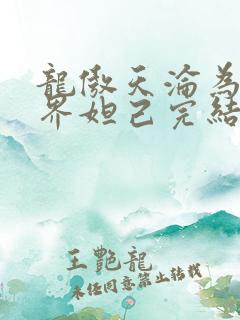 龍傲天淪為
界妲己完結
王艷龍
未經同意禁止轉載